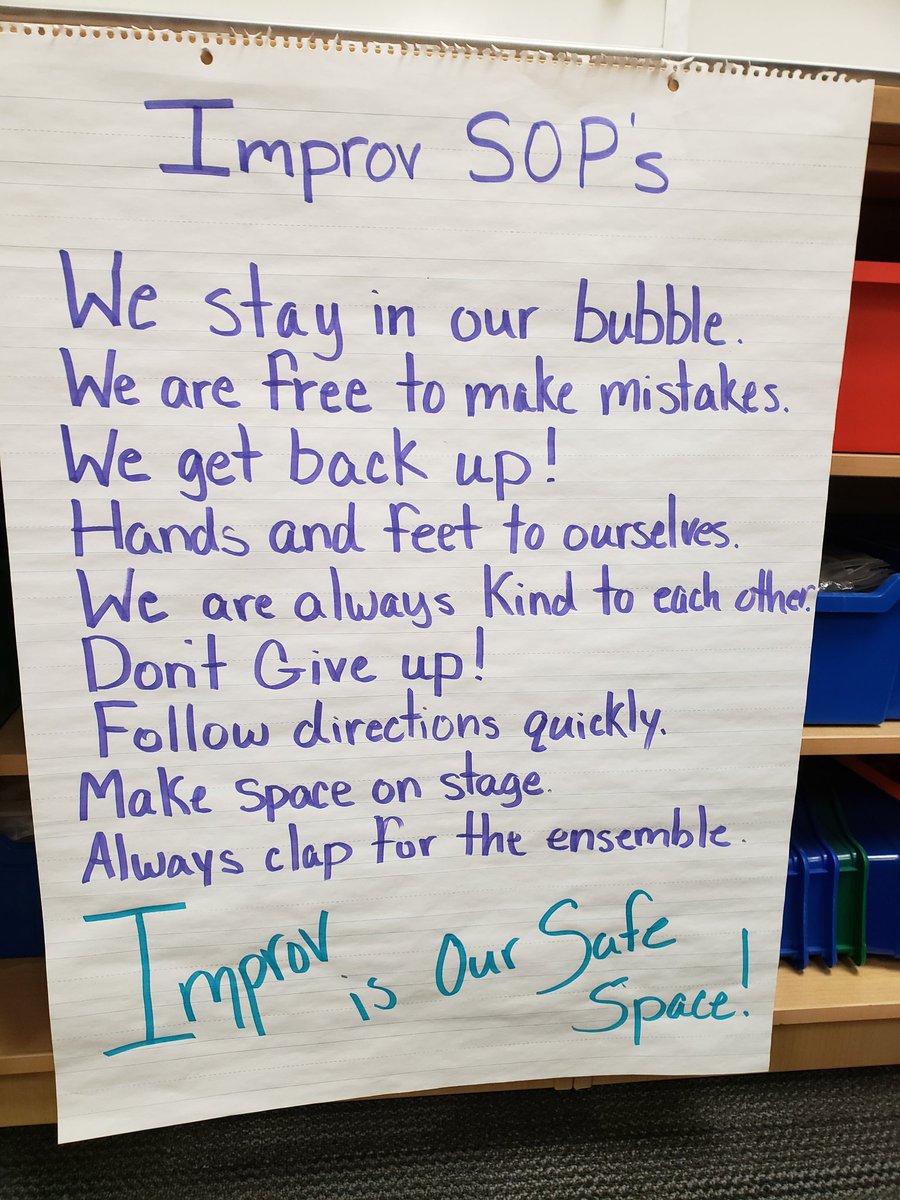 Improv SOP's
We stay in our bubble.
We are free to make mistakes.
We get back up!
Hands and feet to ourselves.
We are always kind to each other.
Don't Give up!
Follow directions quickly.
Make space on stage.
Always clap for the ensemble.
Improv is Our Safe
Space!